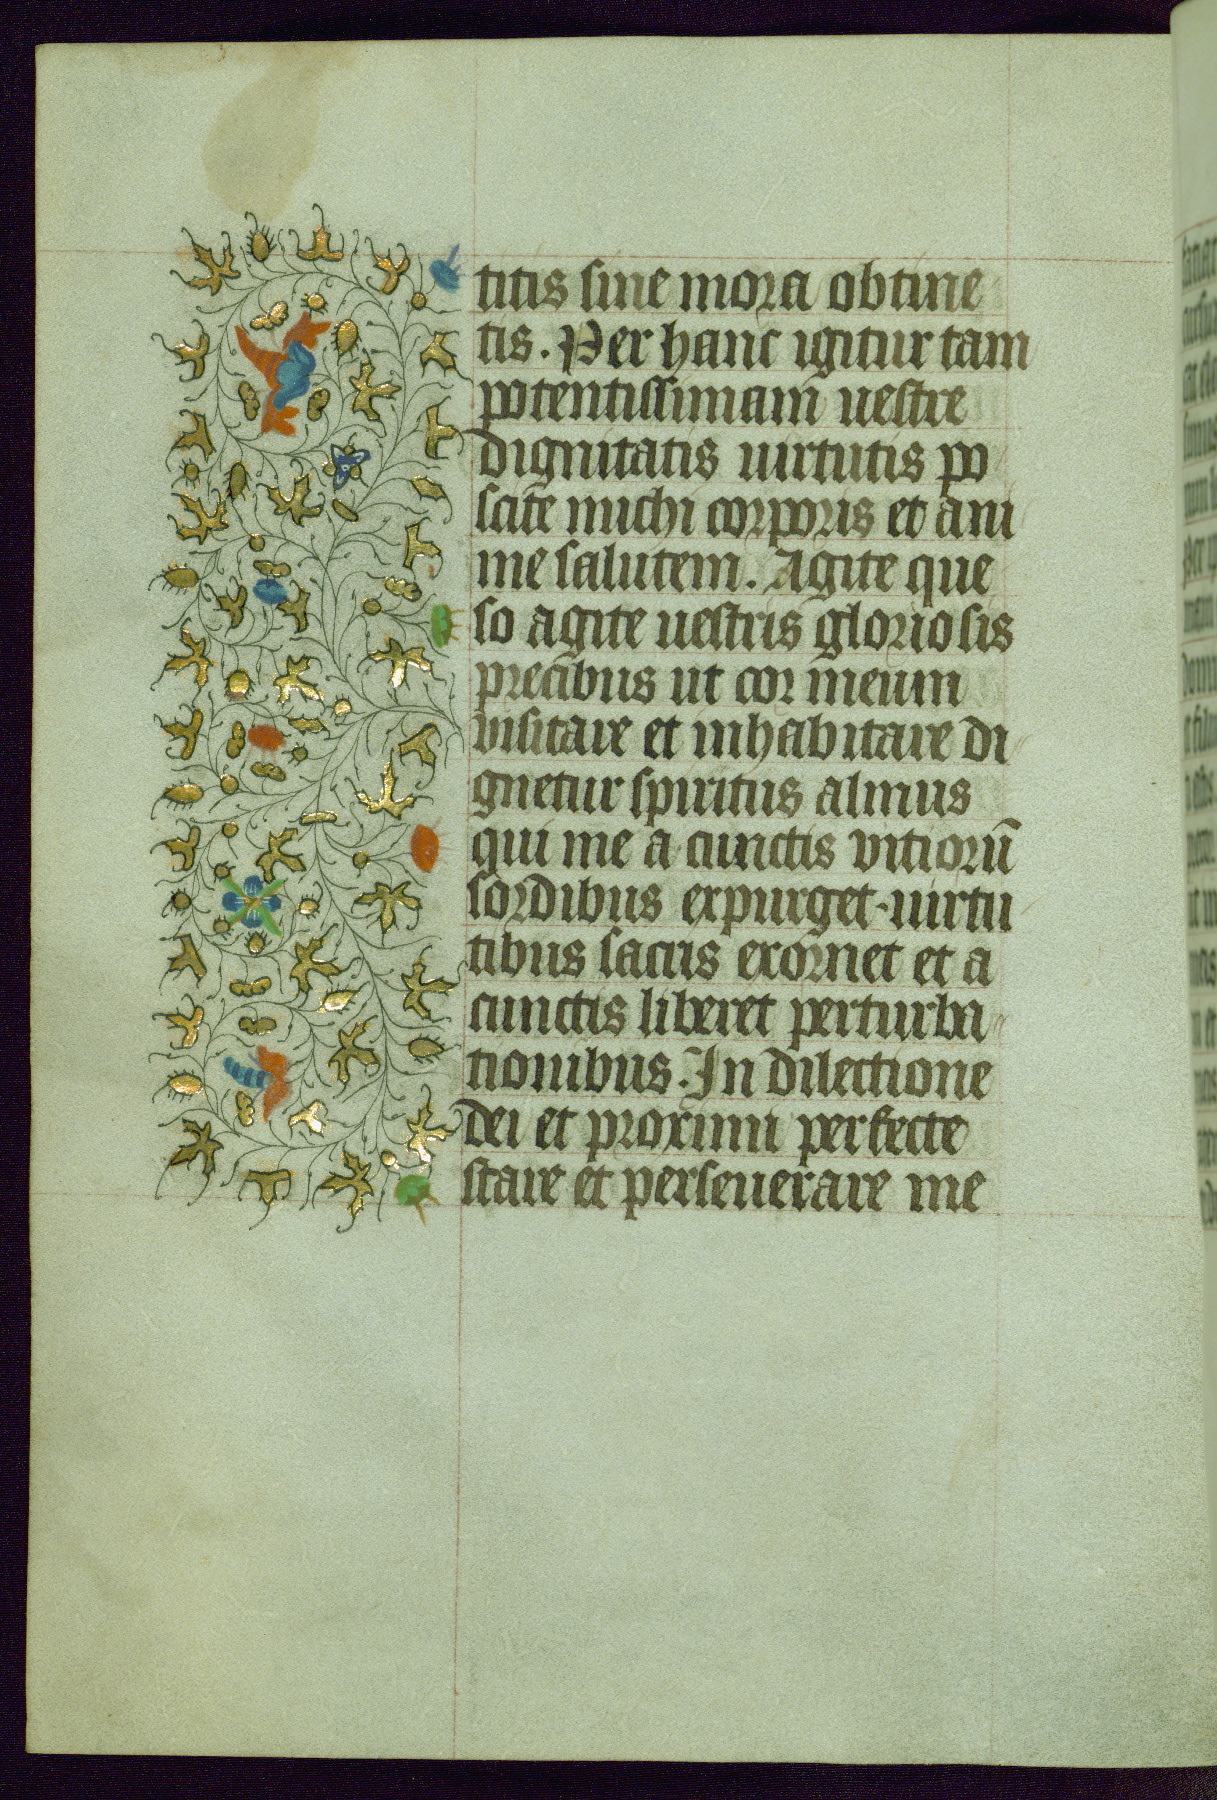 titis sine mora obtine
tis. Per hanc igitur tam
potentissimam uestre
dignitatis uirtutis po
scite michi corporis et ani
me salutem. Agite que
so agite uestris gloriosis
precibus ut cor meum
visitare et inhabitare di
gnetur spiritus almus
qui me a cunctis vitiorū
sordibus expurget. uirtu
tibus sacris exornet et a
cunctis liberet perturba
tionibus. In dilectione
dei et proximi perfecte
stare et perseuerare me